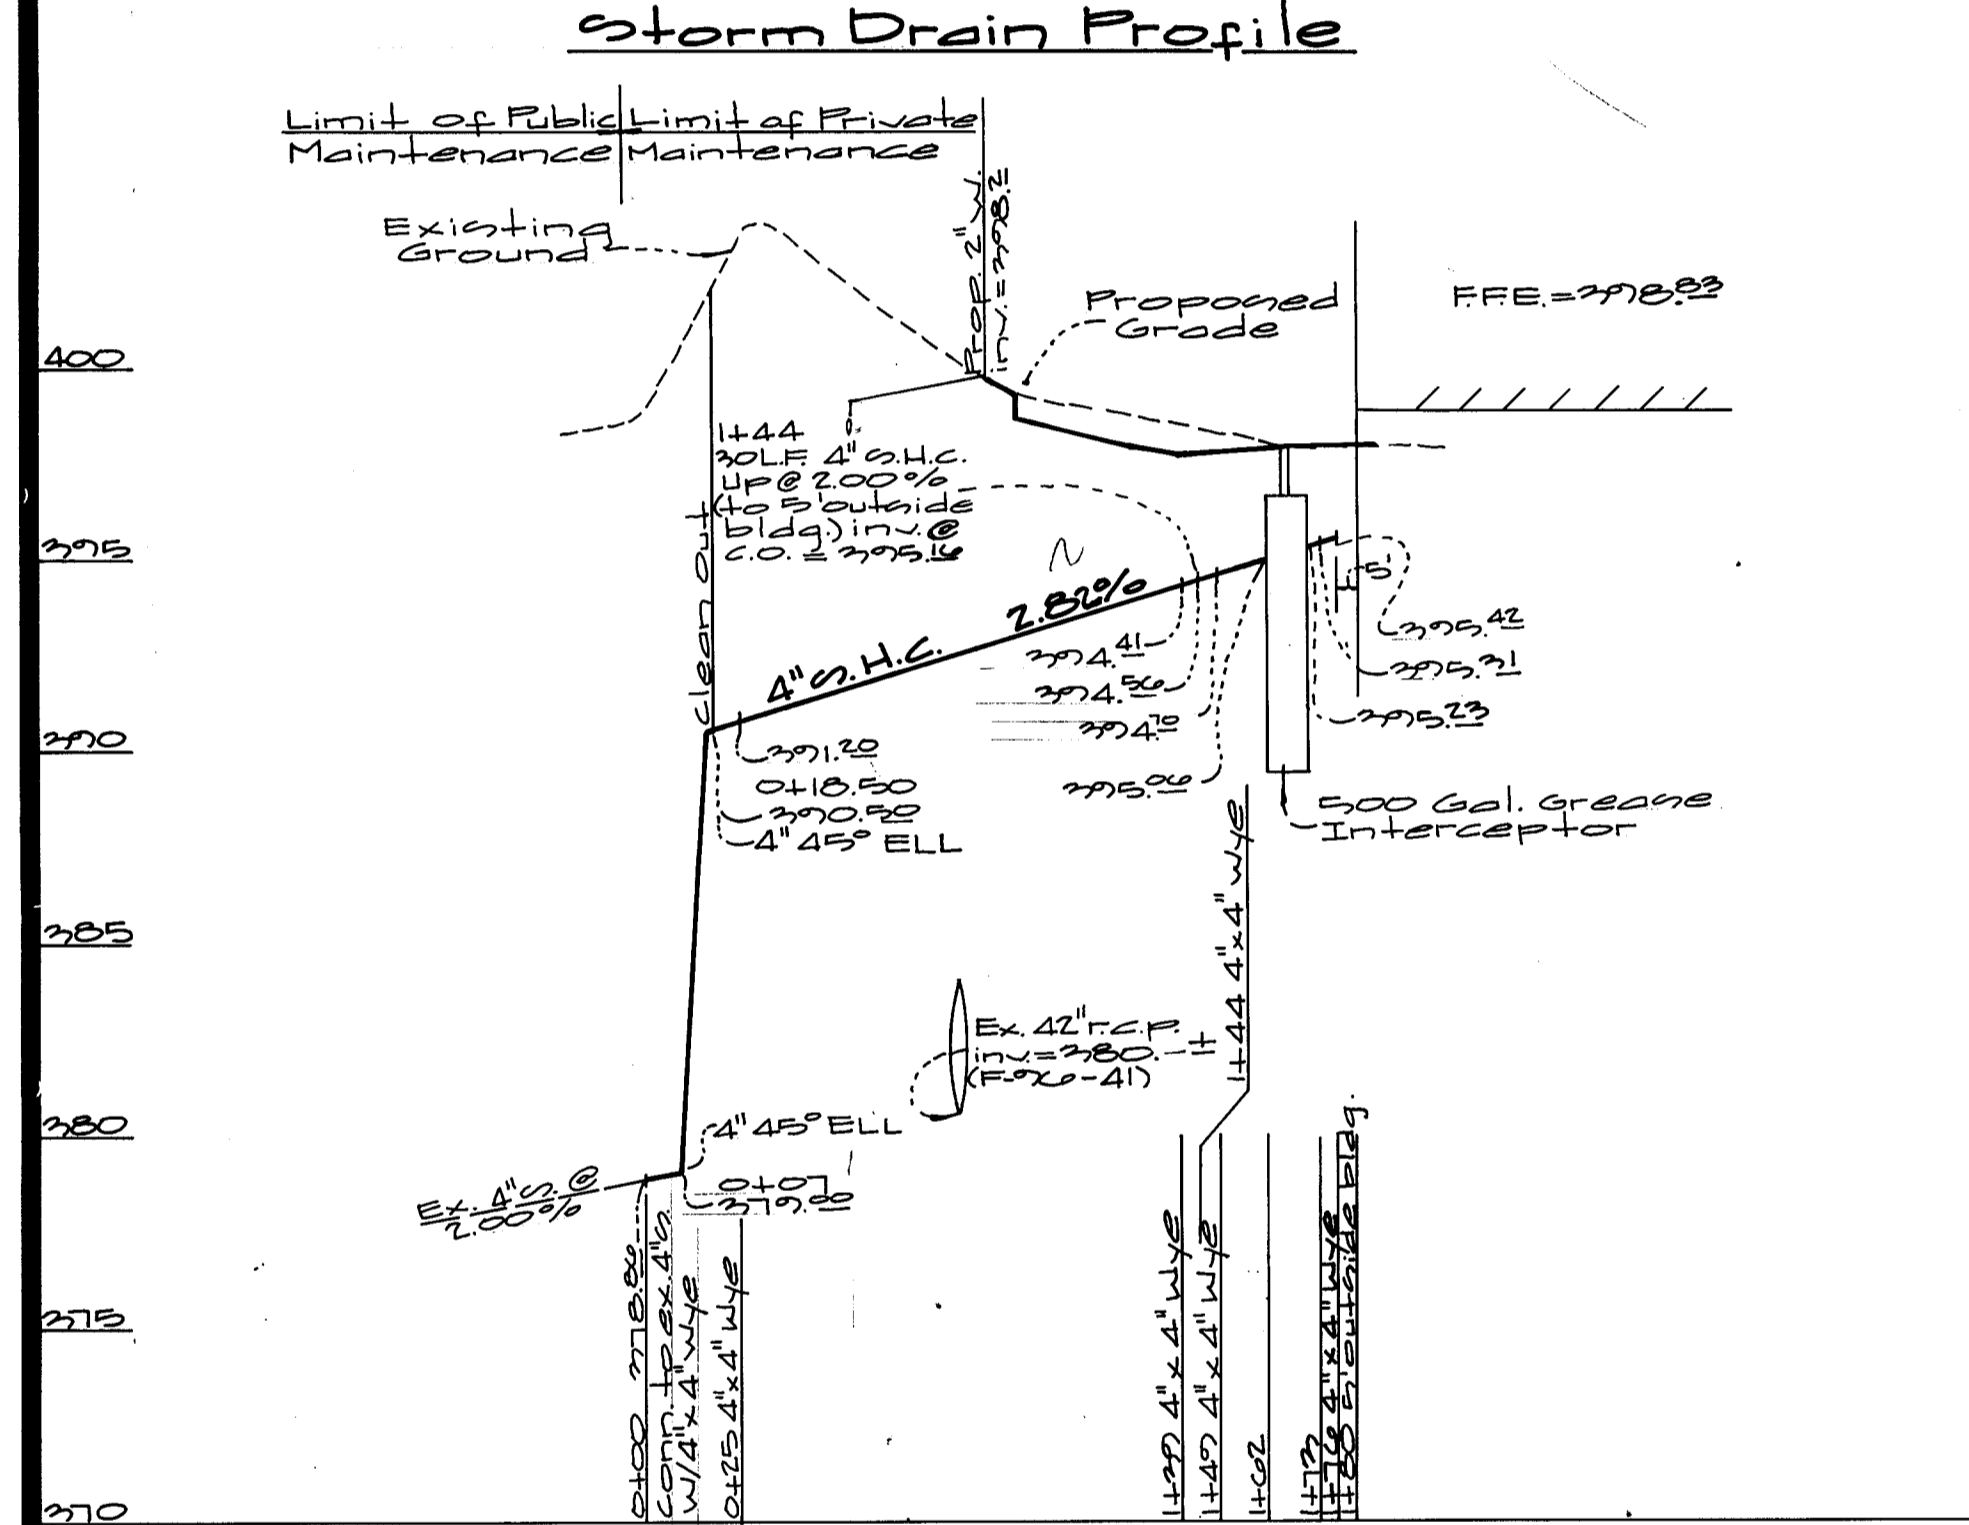 Storm Drain Profile
Limit of Public
Maintenance
Limit of Private
Maintenance
Existing
Ground
Prop. 2" W.
inv.=398.2
Proposed
Grade
F.F.E.=398.83
400
395
390
385
380
375
370
Clean Out
1+44
30L.F. 4" S.H.C.
up @ 2.00%
(to 5' outside
bldg.) inv. @
C.O. = 395.16
2.82%
4" S.H.C.
394.41
394.56
394.70
395.06
5'
395.42
395.31
395.23
391.20
0+18.50
390.50
4" 45° ELL
500 Gal. Grease
Interceptor
1+44 4"x4" Wye
Ex. 42" r.c.p.
inv.=380.-±
(F-96-41)
4" 45° ELL
0+07
379.00
Ex. 4" S. @
2.00%
0+00 378.86
Conn. to ex. 4" S.
W/4"x4" Wye
0+25 4"x4" Wye
1+39 4"x4" Wye
1+49 4"x4" Wye
1+62
1+73
1+76 4"x4" Wye
1+80 5' outside bldg.